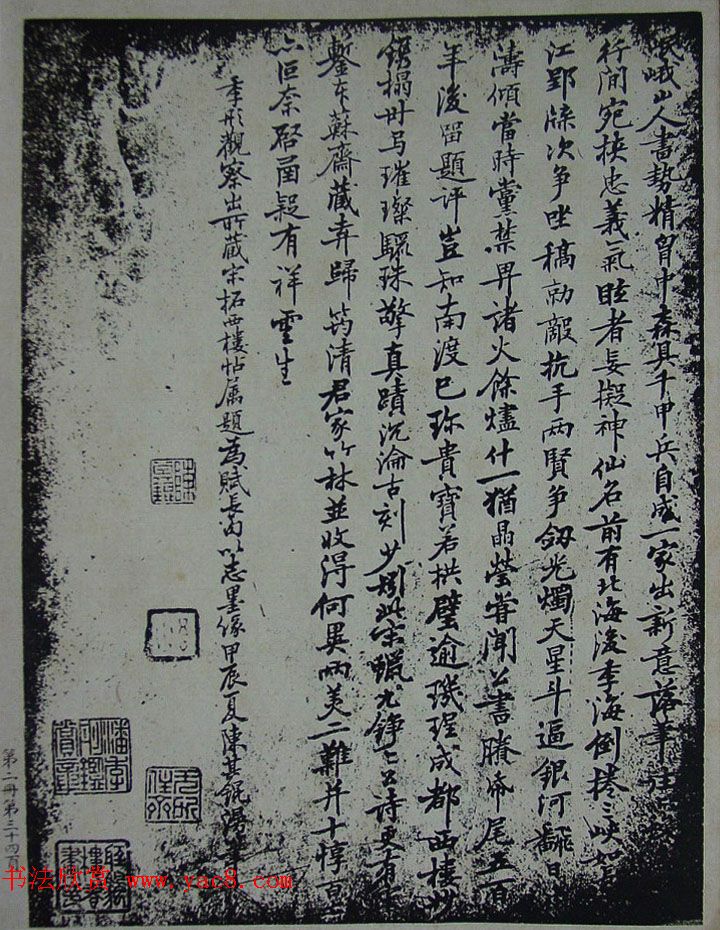 岷峨山人書勢精胷中森具千甲兵自成一家出新意落筆
行間宛挾忠義氣眩者妄擬神仙名前有北海後季海倒捲三峽如
江郢牒次争坐稿勍敵抗手兩賢争劔光燭天星斗逼銀河翻
濤傾當時黨禁畀諸火餘燼什一猶晶瑩嘗聞公書賸帋尾五百
年後留題評豈知南渡已珍貴寶若拱璧逾璣珵成都西樓
鐫搨廿马璀璨驪珠擎真蹟沉淪古刻少矧此宋蠟尤錚〻公詩更有
鏨本蘇齋藏弆歸筠清君家竹林並收得何異兩美二難并十惇
六恒奈啓函疑有祥雲生
季彤觀察出所藏宋拓西樓帖属題為賦長句以志墨緣甲辰夏陳其錕
潘季彤鑑賞章
第二册第三十四頁
书法欣赏 www.yac8.com